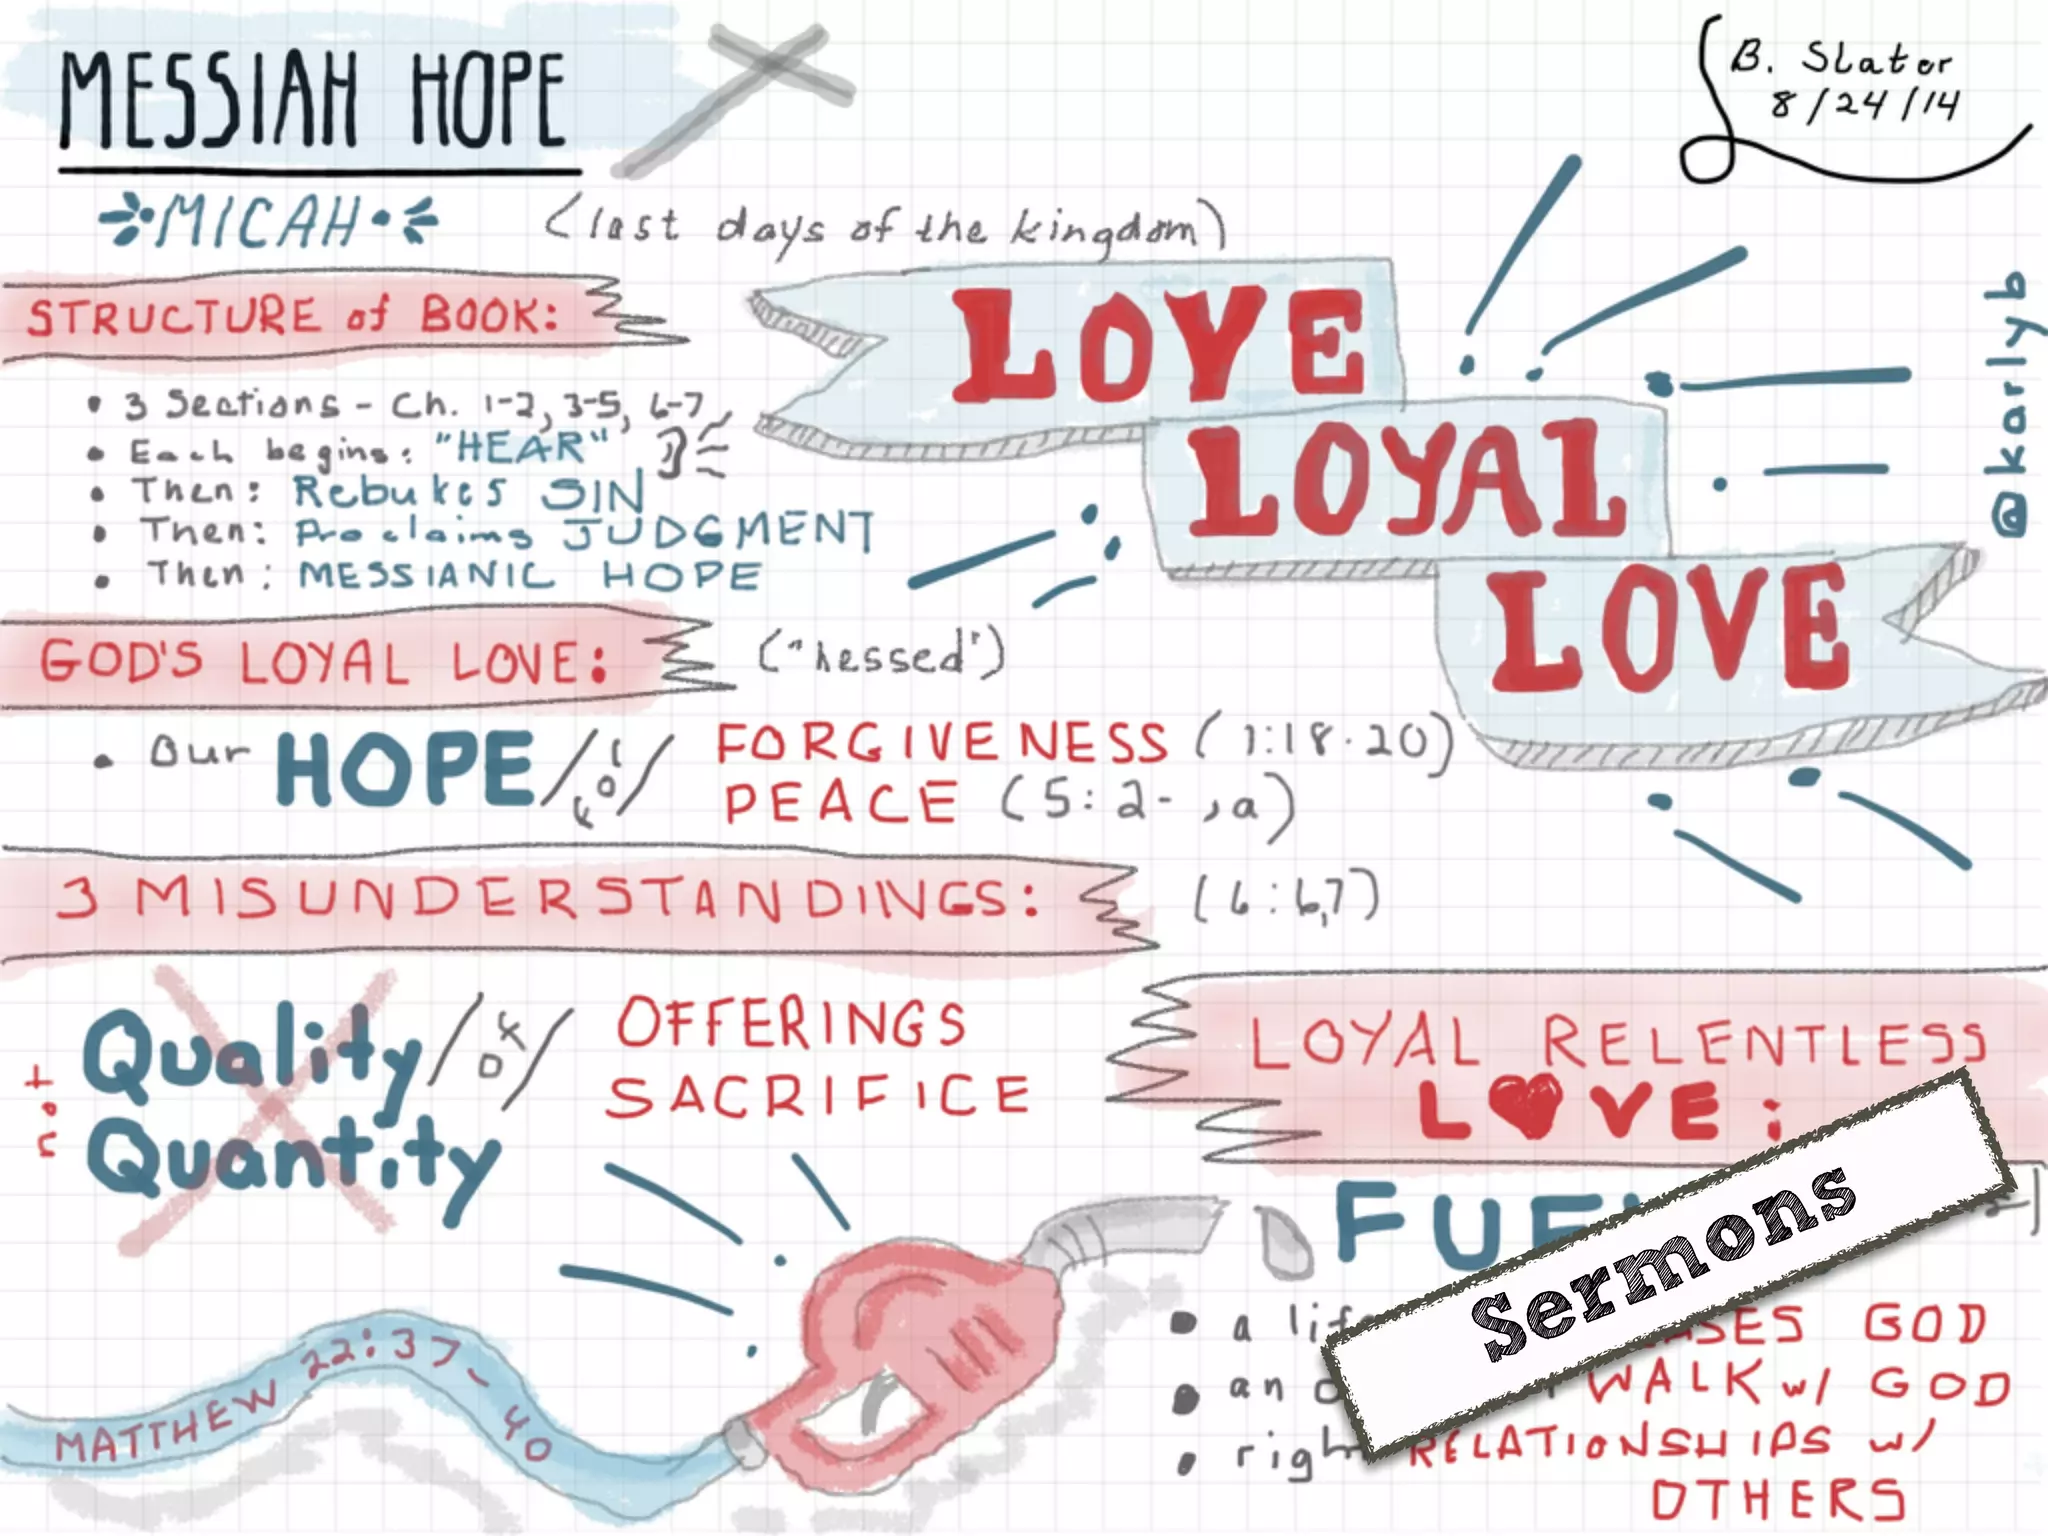 MESSIAH HOPE
B. Slater
8/24/14
MICAH
(last days of the kingdom)
@karlyb
STRUCTURE of BOOK:
• 3 Sections - Ch. 1-2, 3-5, 6-7
• Each begins: "HEAR"
• Then: Rebukes SIN
• Then: Proclaims JUDGMENT
• Then: MESSIANIC HOPE
LOVE
LOYAL
LOVE
GOD'S LOYAL LOVE: ("hessed")
• Our HOPE / for / FORGIVENESS (1:18-20)
PEACE (5:2- ,a)
3 MISUNDERSTANDINGS: (6:6,7)
not
Quality
Quantity
/ of /
OFFERINGS
SACRIFICE
LOYAL RELENTLESS
LOVE:
Sermons
• a GOD
• WALK w/ GOD
• RELATIONSHIPS w/
OTHERS
MATTHEW 22:37-40